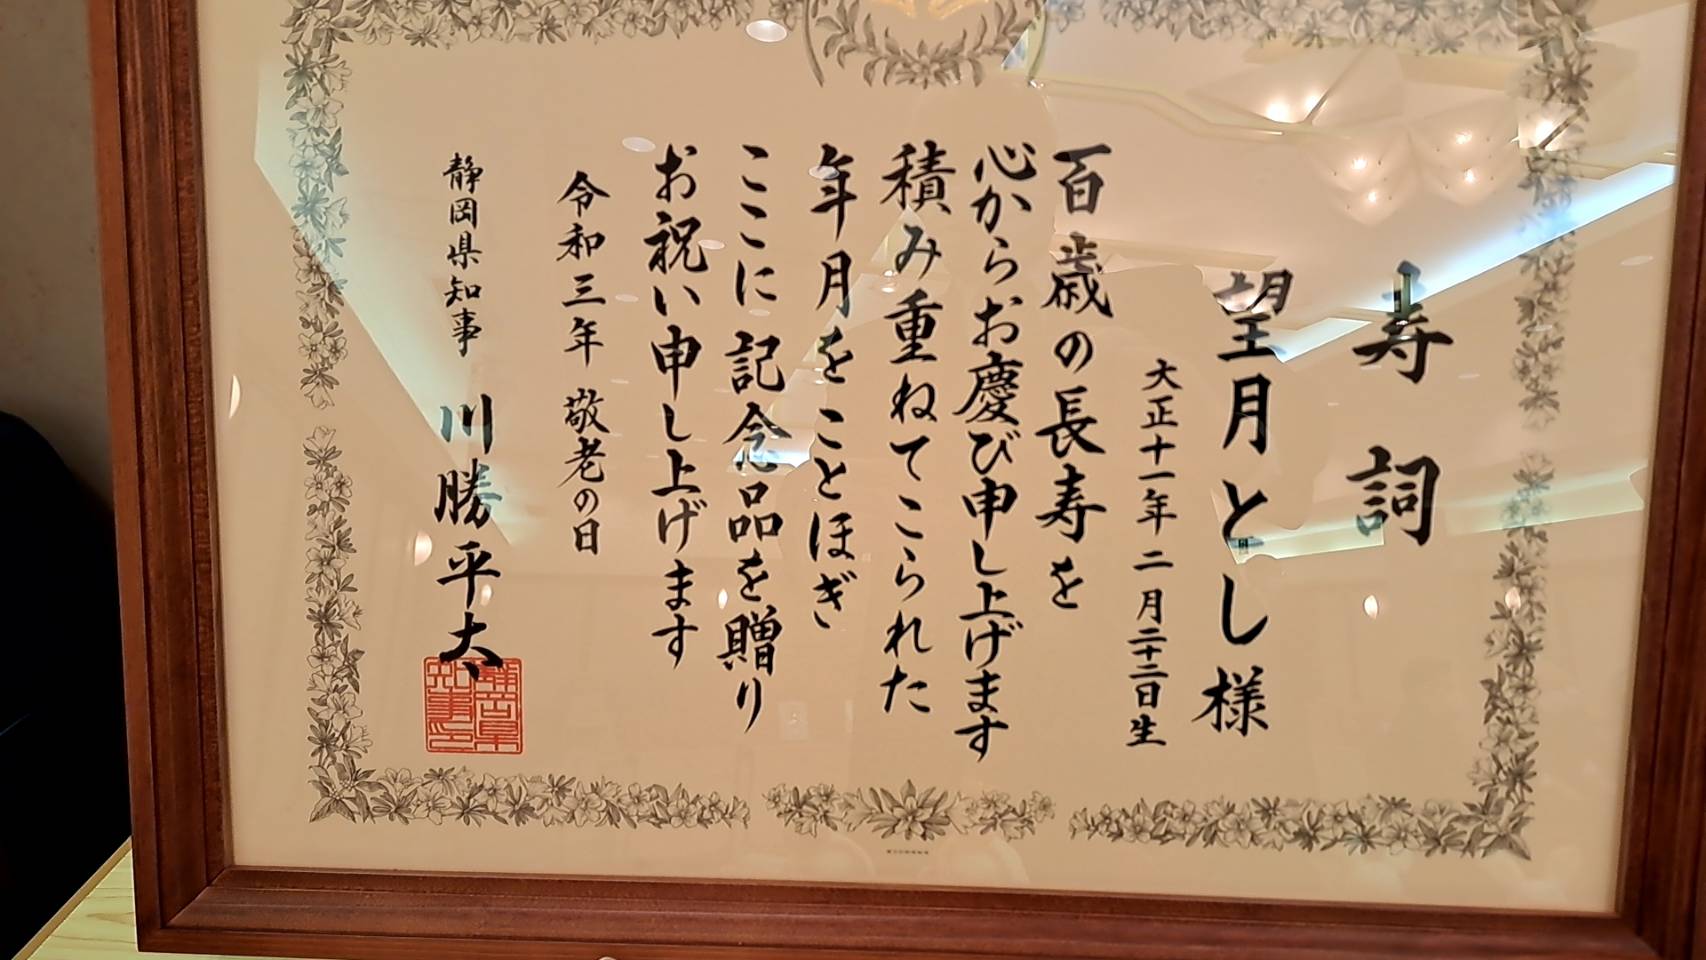 寿詞
望月とし様
大正十一年二月二十二日生
百歳の長寿を
心からお慶び申し上げます
積み重ねてこられた
年月をことほぎ
ここに記念品を贈り
お祝い申し上げます
令和三年 敬老の日
静岡県知事 川勝平太
静岡県
知事之印